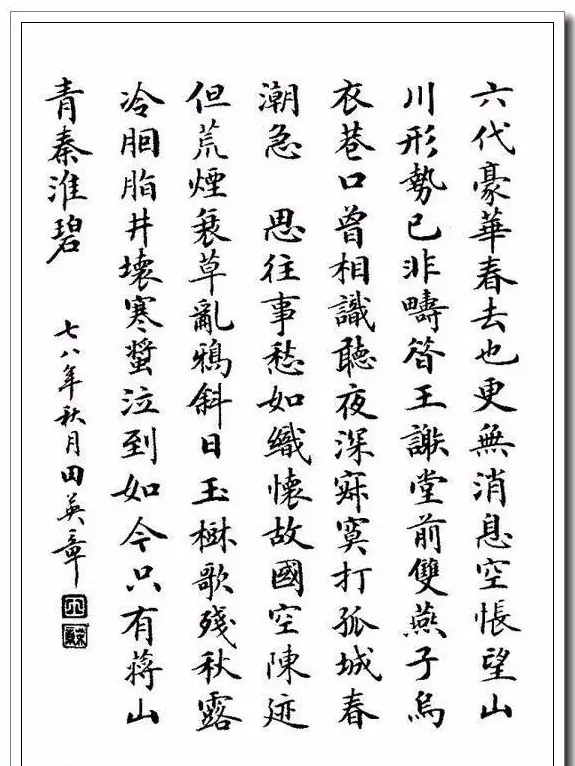 六代豪華春去也更無消息空悵望山
川形勢已非疇昔王謝堂前雙燕子烏
衣巷口曾相識聽夜深寂寞打孤城春
潮急　思往事愁如織懷故國空陳迹
但荒煙衰草亂鴉斜日玉樹歌殘秋露
冷胭脂井壞寒螿泣到如今只有蔣山
青秦淮碧
七八年秋月田英章